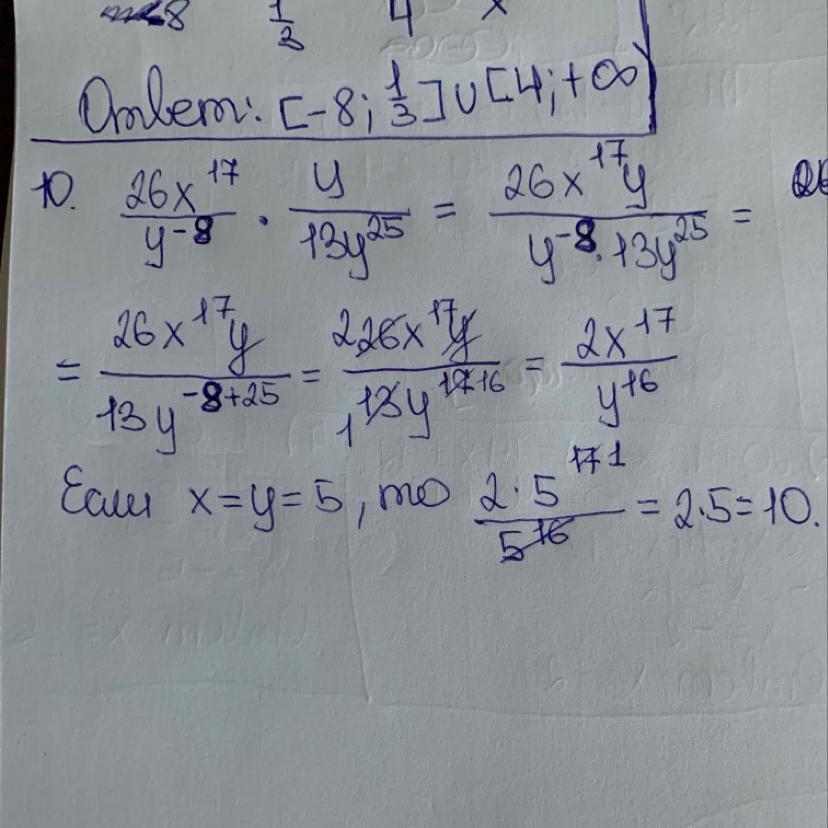 8 1/3 4 x
Ответ: [-8; 1/3] ∪ [4; +∞
10. 26x^17/y^-8 · y/13y^25 = 26x^17y/y^-8·13y^25 =
= 26x^17y/13y^-8+25 = 2 26x^17y/1 13y^17 16 = 2x^17/y^16
Если x=y=5, то 2·5^17 1/5^16 = 2·5=10.